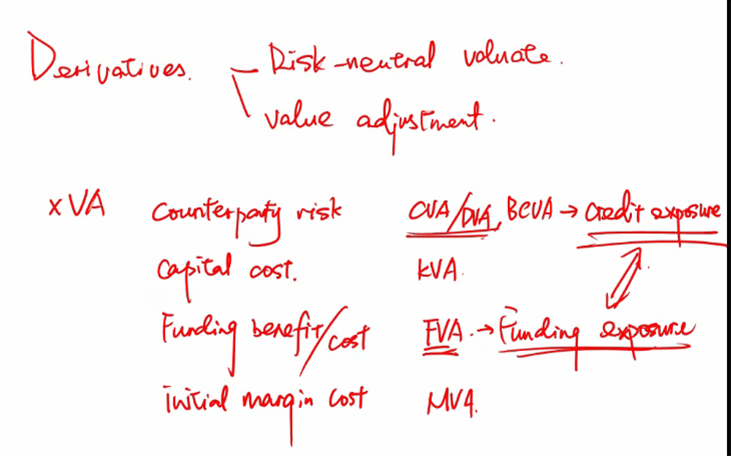 Derivatives. — Risk-neutral valuate.
\ value adjustment.
xVA Counterparty risk CVA/DVA, BCVA → Credit exposure
Capital cost. KVA
Funding benefit/cost FVA. → Funding exposure
initial margin cost MVA.